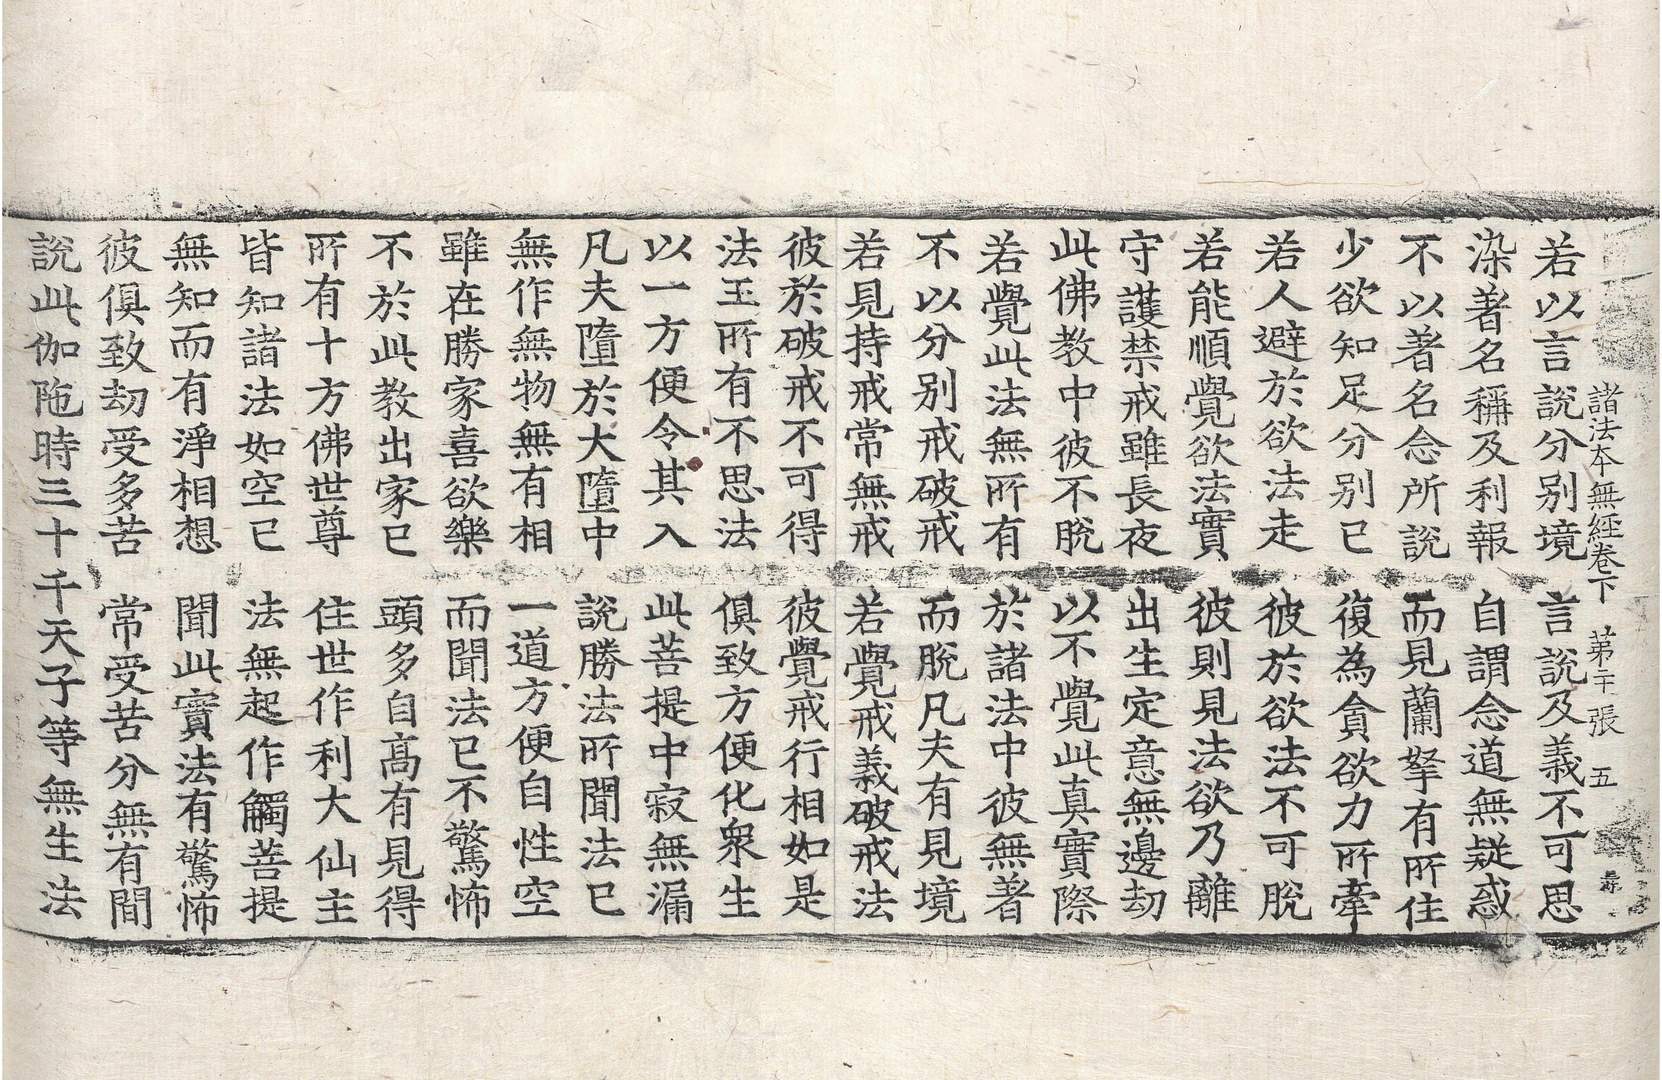 諸法本無經卷下 第二十張 五
若以言說分別境 言說及義不可思
染著名稱及利報 自謂念道無疑惑
不以著名念所說 而見蘭拏有所住
少欲知足分別已 復為貪欲力所牽
若人避於欲法走 彼於欲法不可脫
若能順覺欲法實 彼則見法欲乃離
守護禁戒雖長夜 出生定意無邊劫
此佛教中彼不脫 以不覺此真實際
若覺此法無所有 於諸法中彼無著
不以分別戒破戒 而脫凡夫有見境
若見持戒常無戒 若覺戒義破戒法
彼於破戒不可得 彼覺戒行相如是
法王所有不思法 俱致方便化眾生
以一方便令其入 此菩提中寂無漏
凡夫墮於大墮中 說勝法所聞法已
無作無物無有相 一道方便自性空
雖在勝家喜欲樂 而聞法已不驚怖
不於此教出家已 頭多自高有見得
所有十方佛世尊 住世作利大仙主
皆知諸法如空已 法無起作觸菩提
無知而有淨相想 聞此實法有驚怖
彼俱致劫受多苦 常受苦分無有間
說此伽陁時三十千天子等無生法